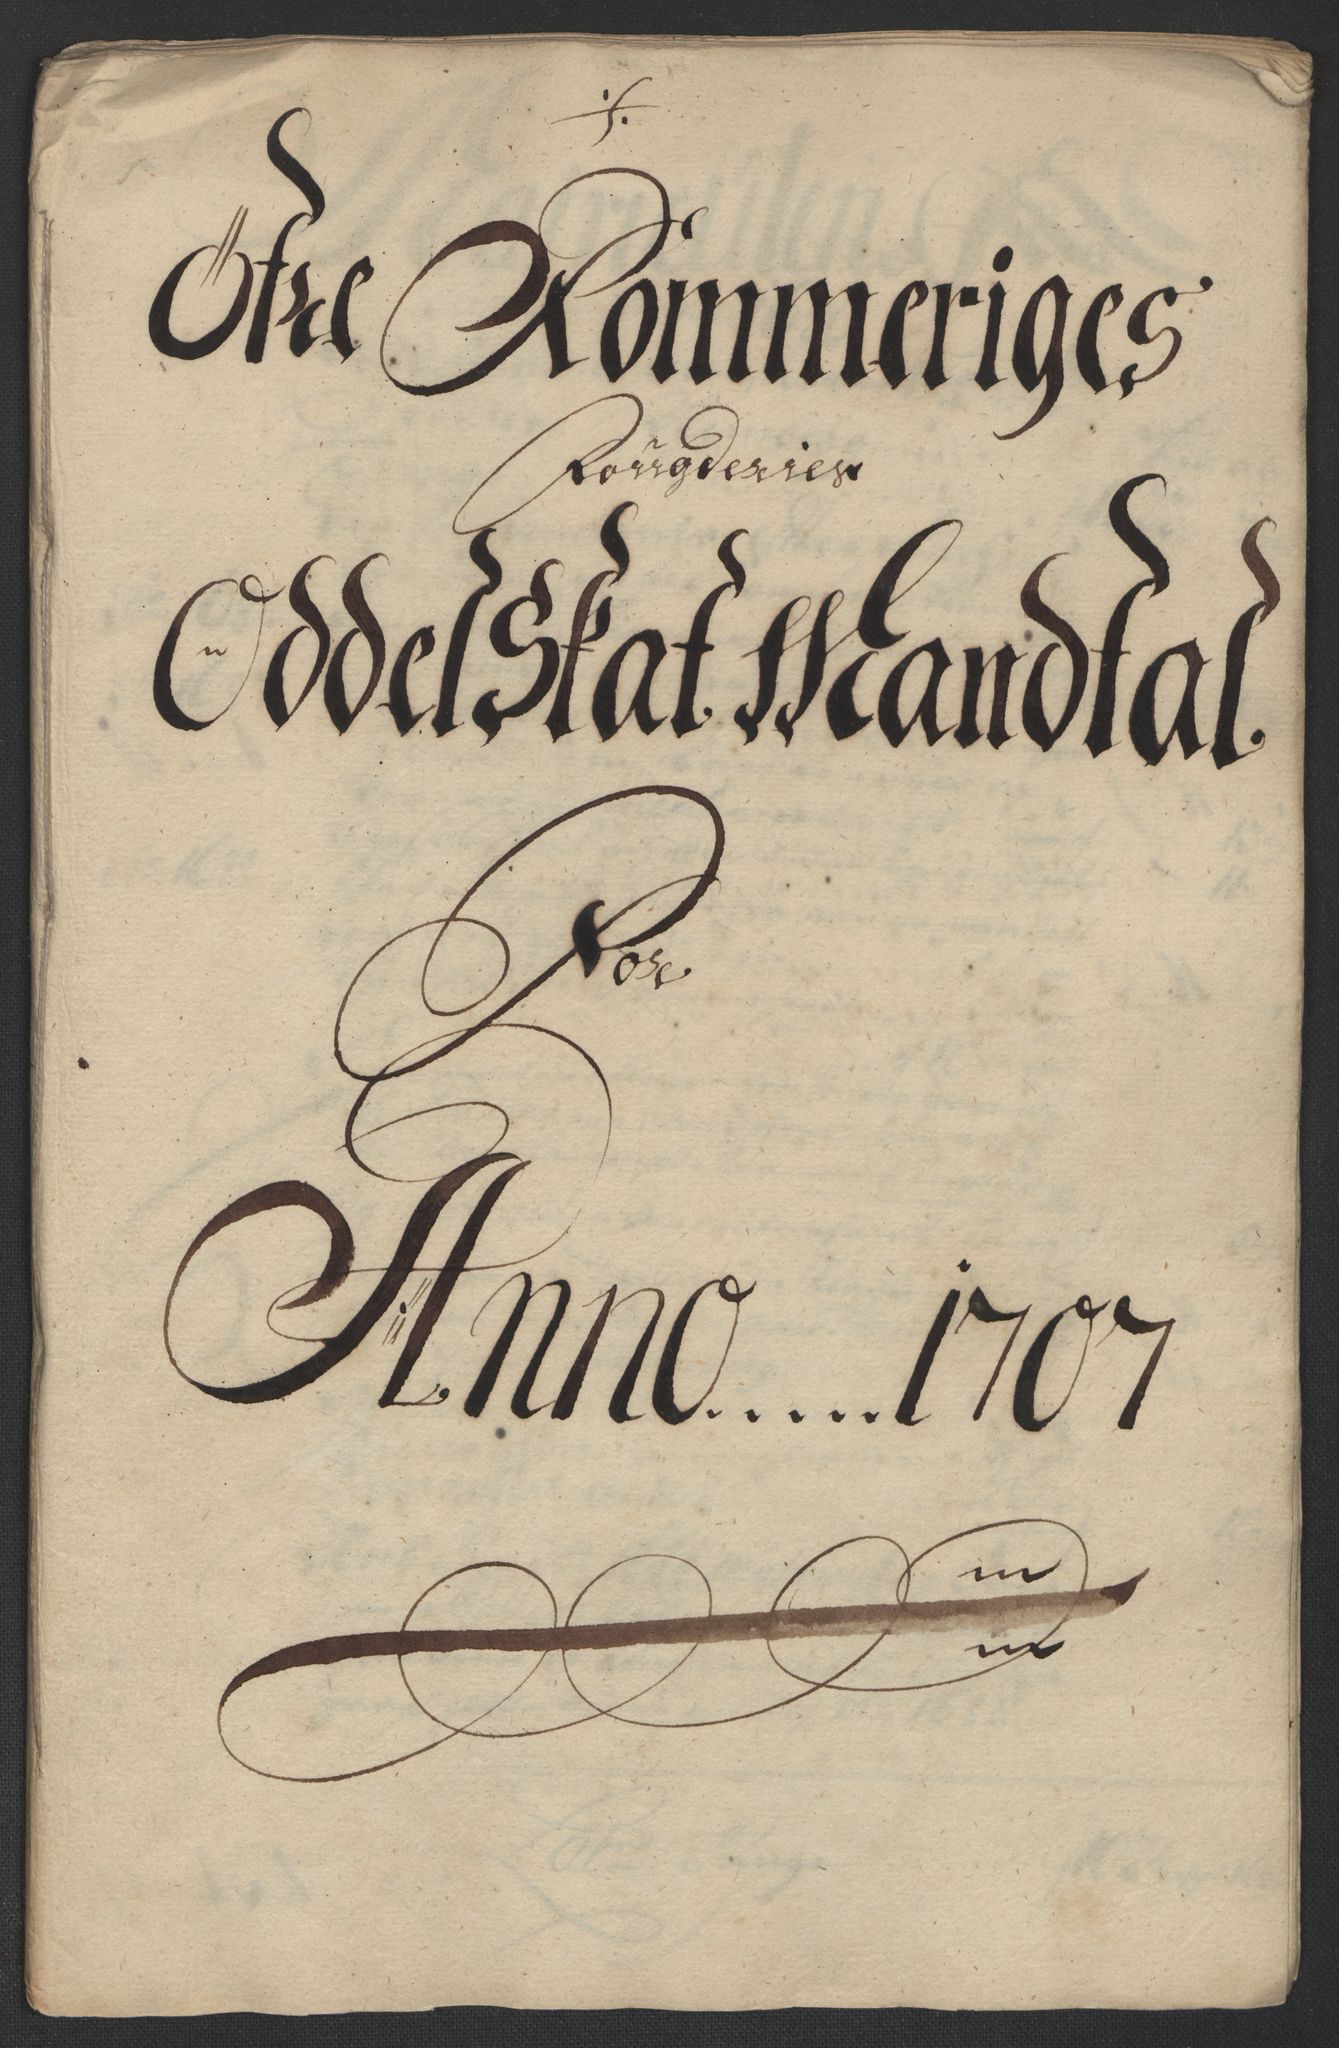 Öfre Rommeriges
Fougderies
Oddel Skat Mandtal.
For
Anno.....1707